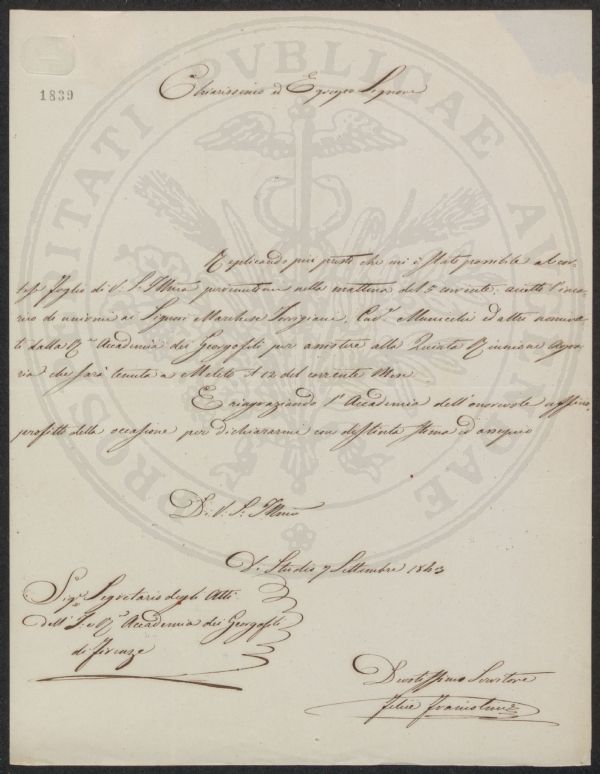 PROSPERITATI PVBLICAE AVGENDAE
1839
Chiarissimo ed Egregio Signore
Replicando più presto che mi è stato possibile al cor-
tese foglio di V. S. Illma pervenutomi nella mattina del 5 corrente: accetto l'inca-
rico di unirmi ai Signori Marchese Torrigiani, Cavr. ed altri nomina-
ti dalla R. Accademia dei Georgofili per assistere alla Quinta Riunione Agra-
ria che sarà tenuta a Meleto il 12 del corrente Mese
E ringraziando l' Accademia dell'onorevole
profitto della occasione per dichiararmi con distinta stima ed ossequio
Di V. S. Illma
Di Studio 7 Settembre 1843
Sigr Segretario degli Atti
dell' I. e R. Accademia dei Georgofili
di Firenze
Devotissimo Servitore
Felice